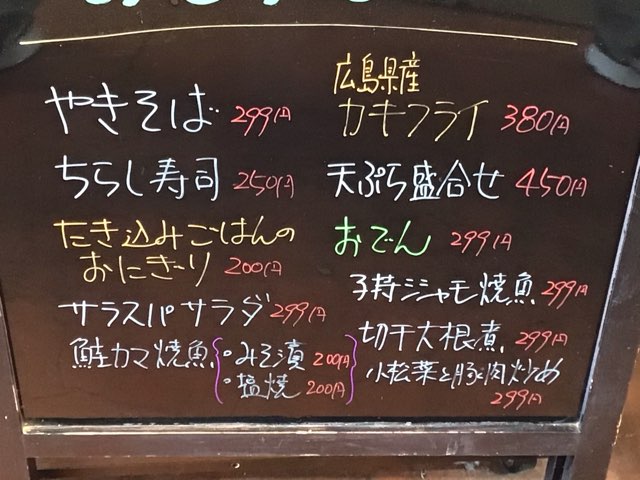 やきそば 299円
ちらし寿司 250円
たき込みごはんの
おにぎり 200円
サラスパサラダ 299円
鮭カマ焼魚
・みそ漬 200円
・塩焼 200円
広島県産
カキフライ 380円
天ぷら盛合せ 450円
おでん 299円
子持シシャモ焼魚 299円
切干大根煮 299円
小松菜と豚肉炒め
299円